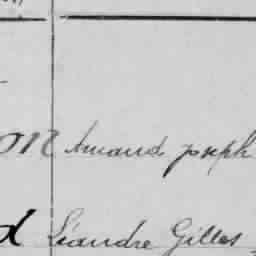 on Amand joseph
d Léandre Gilles